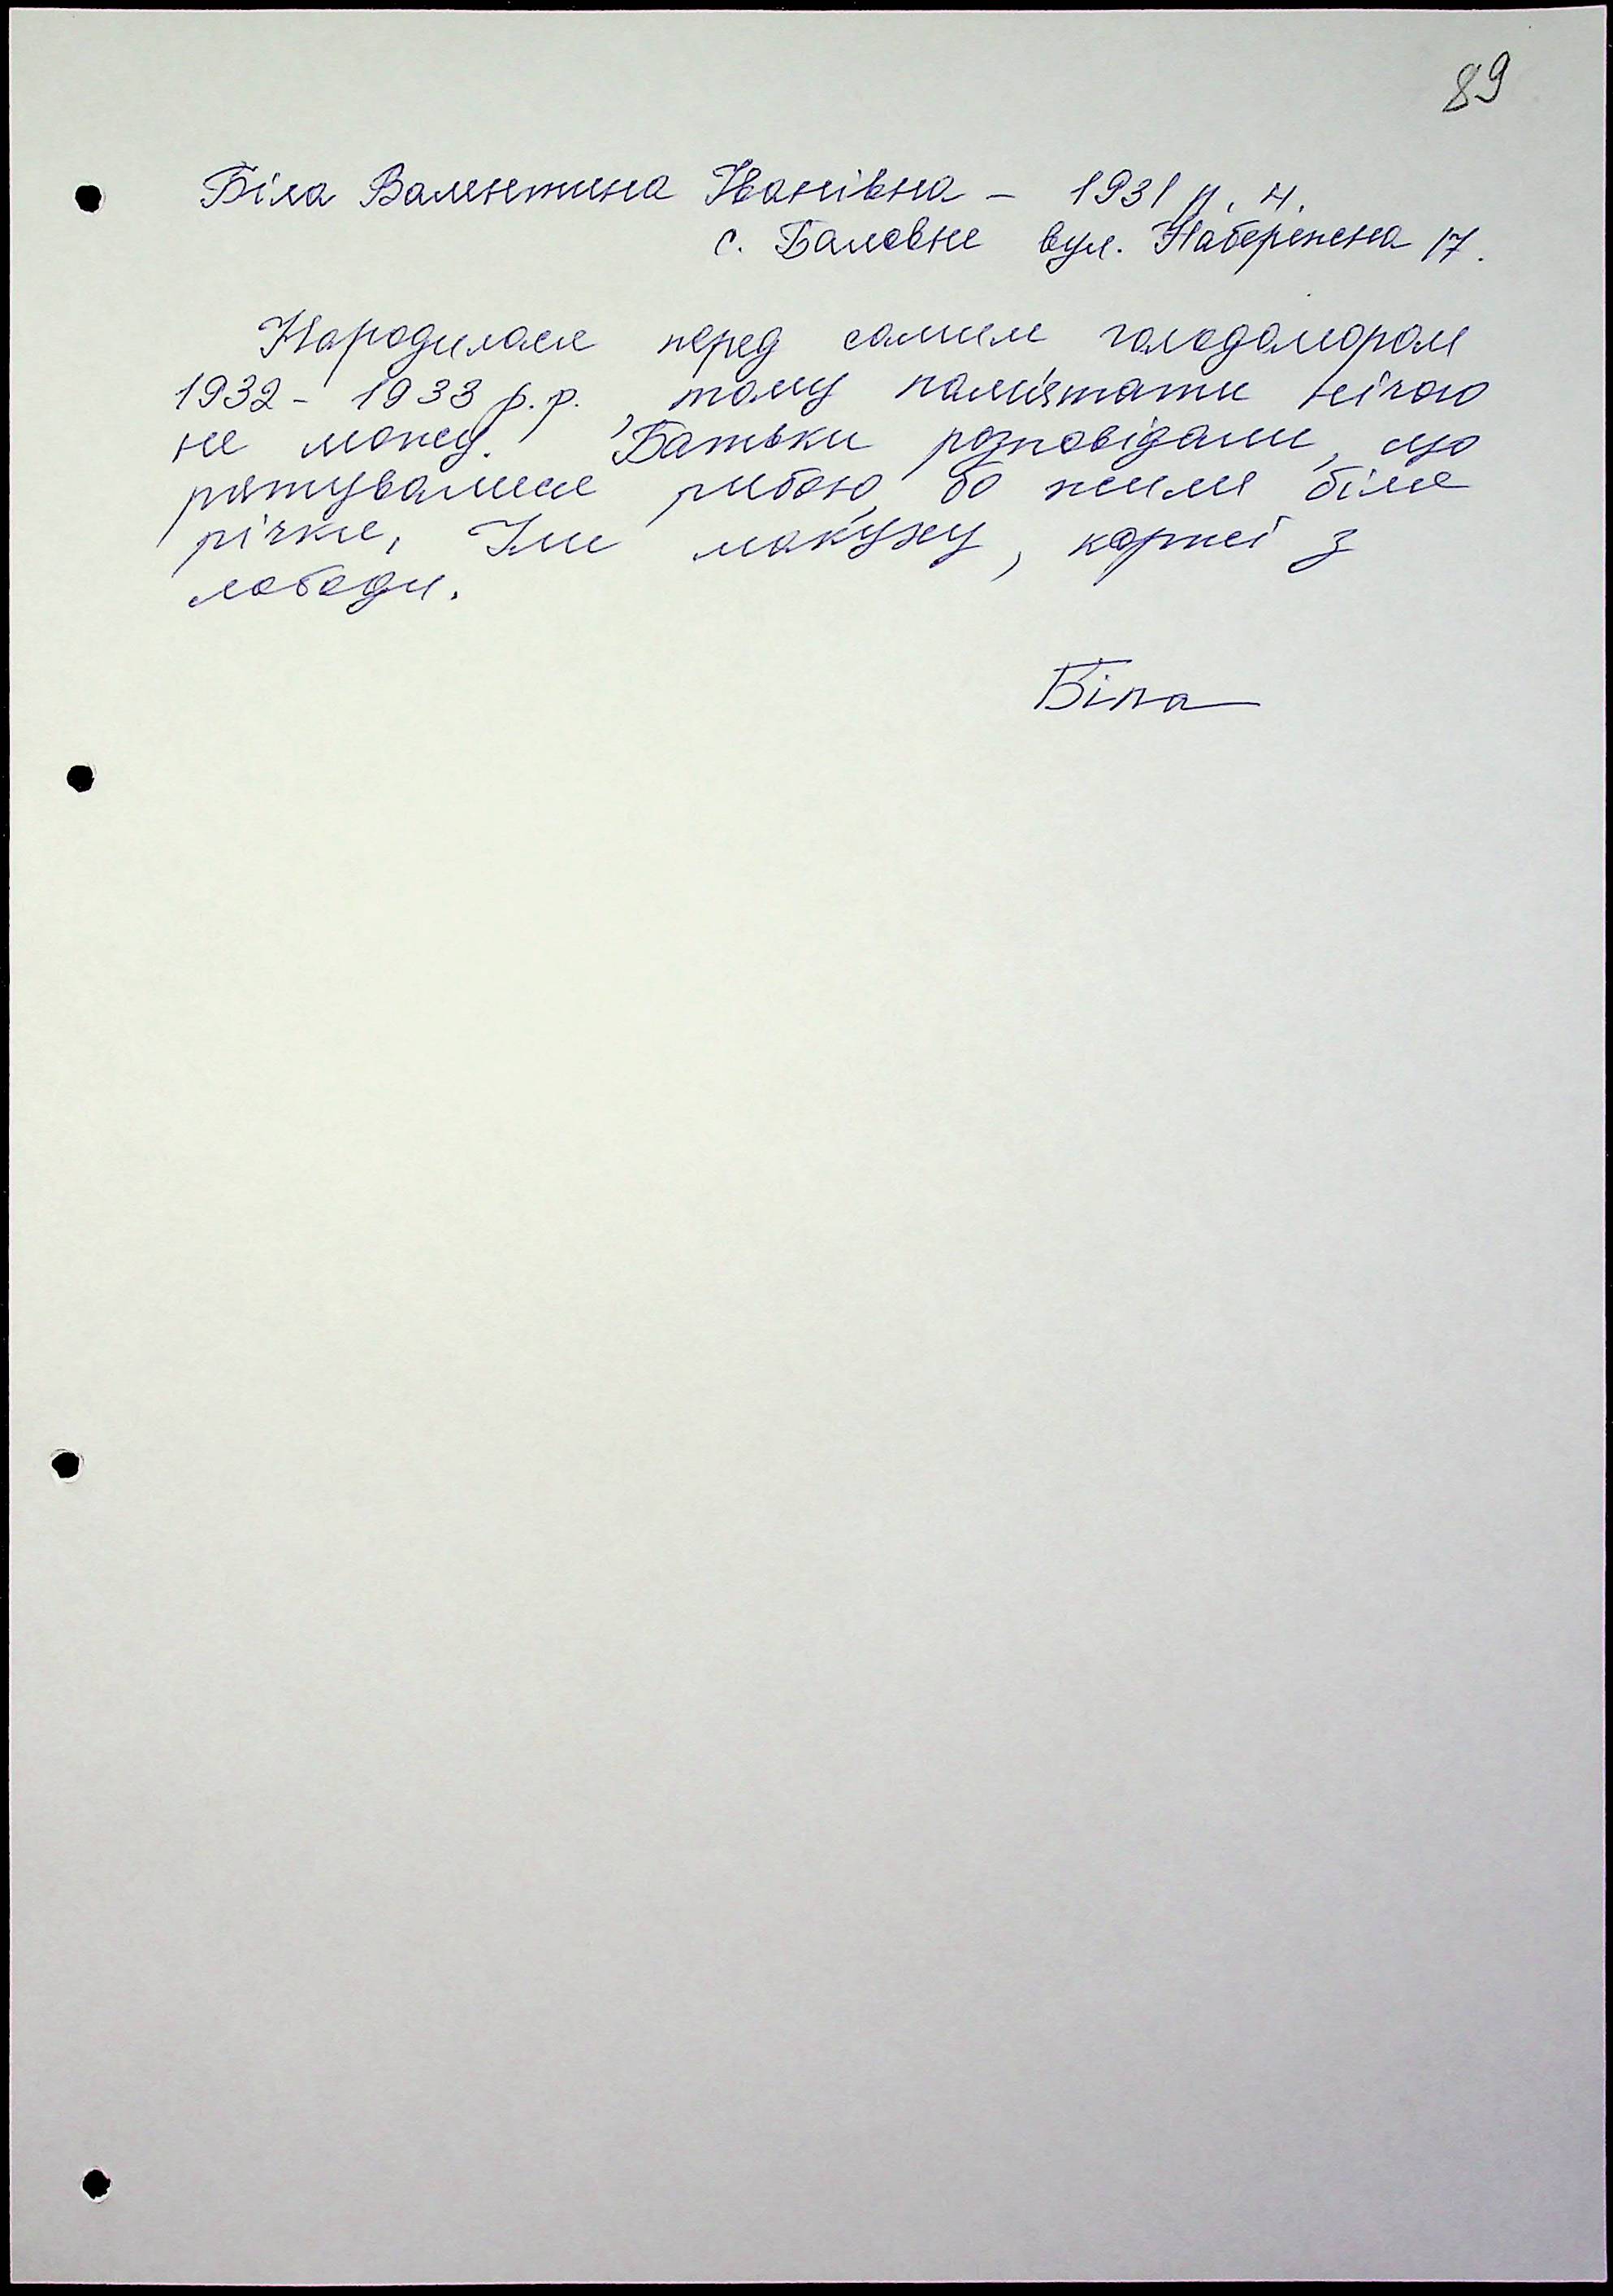 89
Біла Валентина Іванівна – 1931 р. н.
с. Баловне вул. Набережна 17.
Народилася перед самим голодомором
1932 - 1933 р.р., тому пам'ятати нічого
не можу. Батьки розповідали, що
рятувалися рибою, бо жили біля
річки, Їли макуху, коржі з
лободи.
Біла